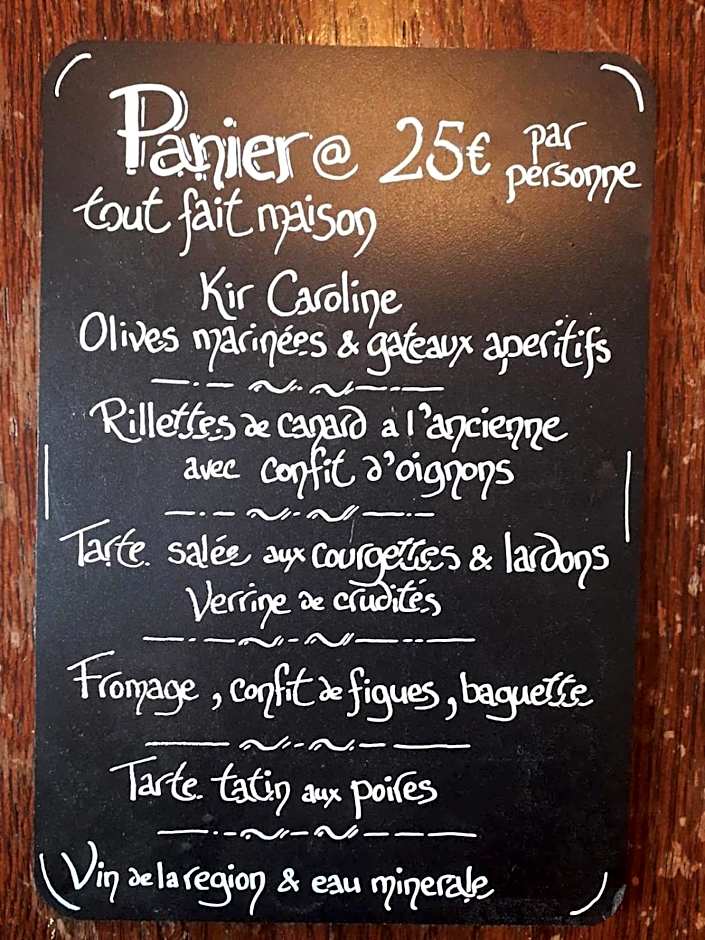 Panier @ 25€ par personne
tout fait maison
Kir Caroline
Olives marinées & gateaux aperitifs
Rillettes de canard a l'ancienne
avec confit d'oignons
Tarte salée aux courgettes & lardons
Verrine de crudités
Fromage, confit de figues, baguette
Tarte tatin aux poires
Vin de la region & eau minerale